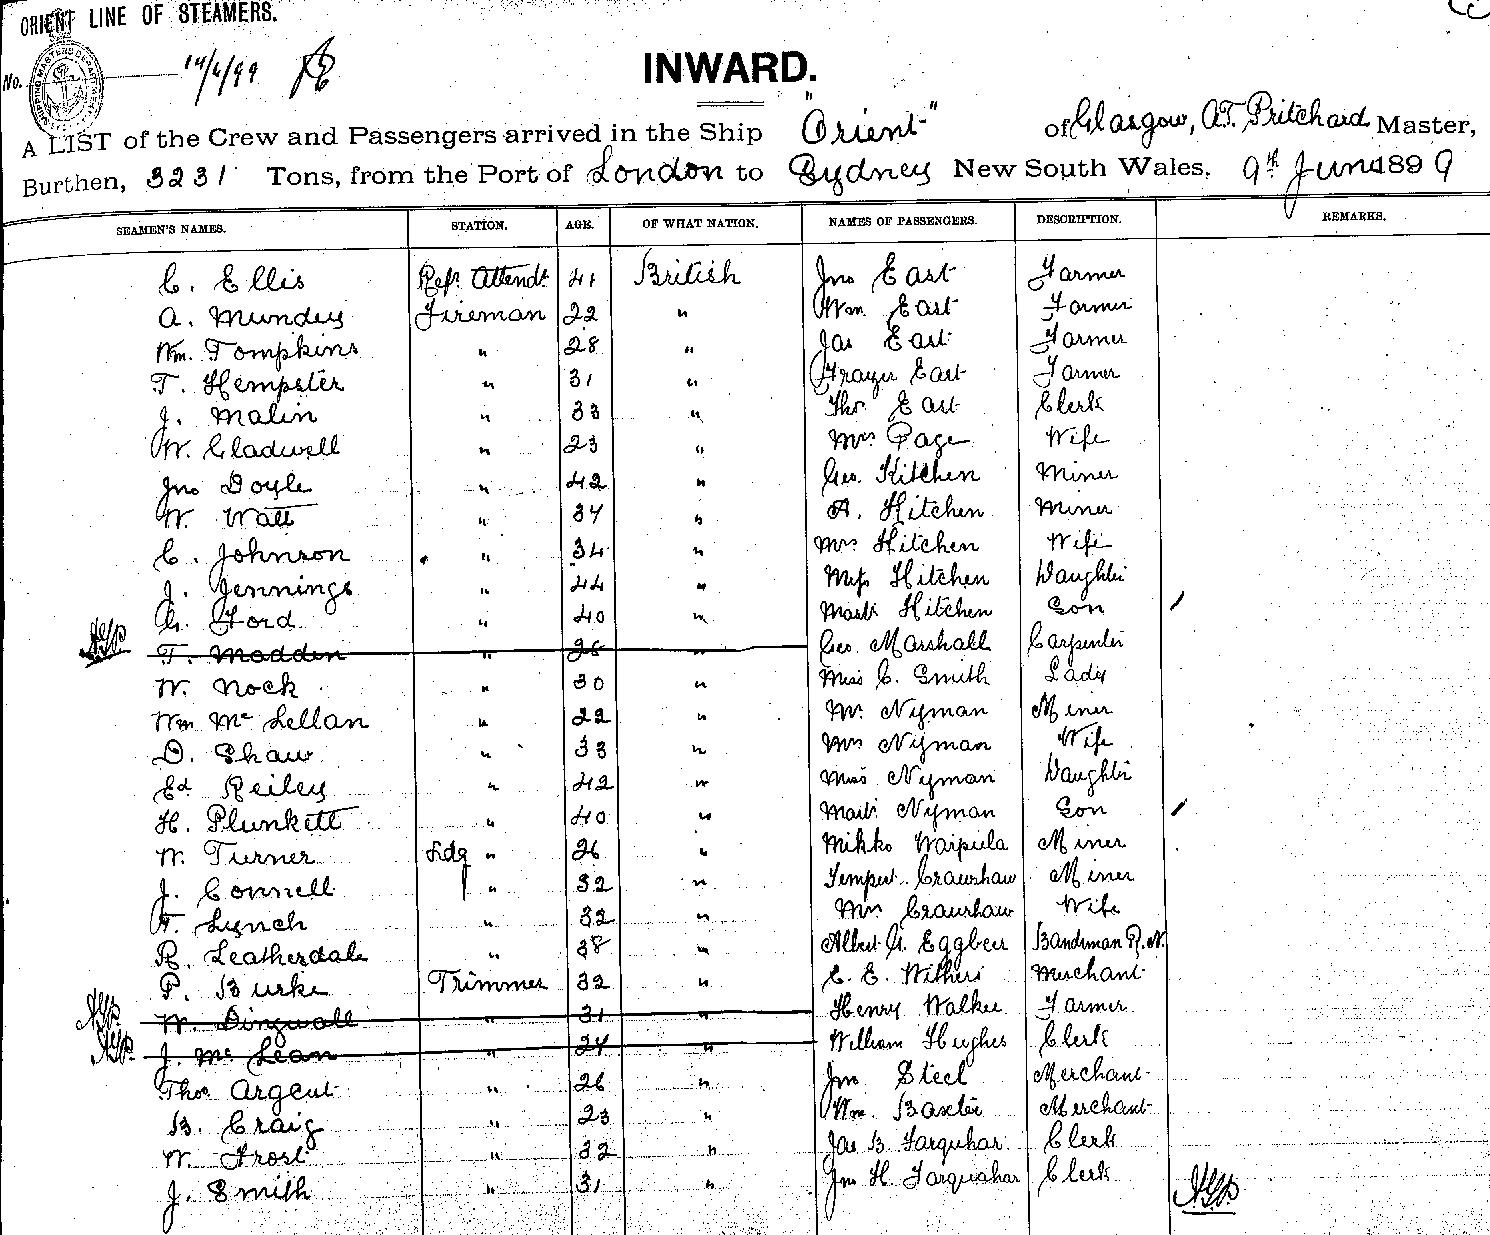 ORIENT LINE OF STEAMERS.
No. 14/6/99
SHIPPING MASTERS DEPARTMENT
INWARD.
A LIST of the Crew and Passengers arrived in the Ship "Orient" of Glasgow, A.T. Pritchard Master,
Burthen, 3231 Tons, from the Port of London to Sydney New South Wales, 9th June 1899
SEAMEN'S NAMES. STATION. AGE. OF WHAT NATION. NAMES OF PASSENGERS. DESCRIPTION. REMARKS.
C. Ellis Refr. Attendt 41 British Jno East Farmer
A. Mundey Fireman 22 " Wm. East Farmer
Wm. Tompkins " 28 " Jas East Farmer
T. Hempster " 31 " Frazer East Farmer
J. Malin " 33 " Thos East Clerk
W. Gladwell " 23 " Mrs Page Wife
Jno Doyle " 42 " Geo. Hitchen Miner
W. Watt " 34 " A. Hitchen Miner
C. Johnson " 34 " Mrs Hitchen Wife
J. Jennings " 44 " Miss Hitchen Daughter
Ch. Ford " 40 " Mastr Hitchen Son
T. Madden " 28 " Geo. Marshall Carpenter
W. Nock " 30 " Miss C. Smith Lady
Wm Mc Lellan " 22 " Mr. Nyman Miner
D. Shaw " 33 " Mrs Nyman Wife
Ed. Reiley " 42 " Miss Nyman Daughter
H. Plunkett " 40 " Mastr Nyman Son
W. Turner Ldg " 26 " Mikko Warpula Miner
J. Connell " 32 " Tempest Crawshaw Miner
F. Lynch " 32 " Mrs Crawshaw Wife
R. Leatherdale " 38 " Albert G. Eggbeer Bandsman R.N.
P. Burke Trimmer 32 " C. E. Withers Merchant
W. Dingwall " 31 " Henry Walker Farmer
J. Mc Lean " 24 " William Hughes Clerk
Thos Argent " 26 " Jno Steel Merchant
B. Craig " 23 " Wm. Baxter Merchant
W. Frost " 32 " Jas B. Farquhar Clerk
J. Smith " 31 " Jno H. Farquahar Clerk